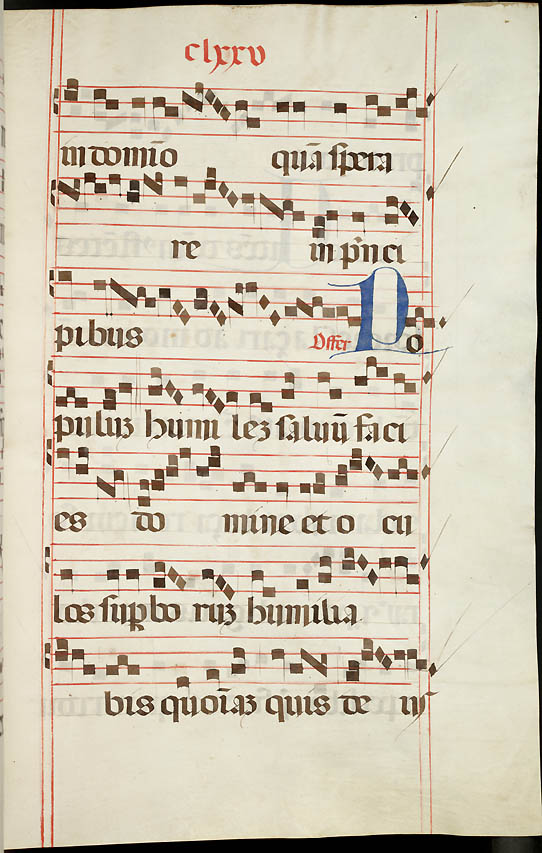 clxxv
in domīo quā spera
re in pn̄ci
pibus Offer Po
puluz humi lez saluū faci
es do mine et o cu
los suꝑbo ruz humilia
bis quoīaz quis de us